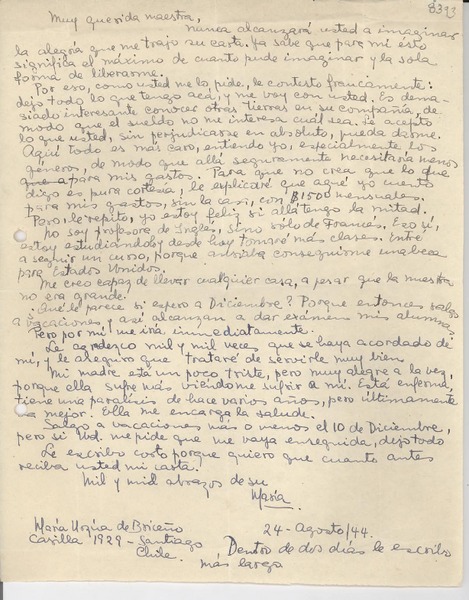 8393
Muy querida maestra,
Nunca alcanzará usted a imaginar
la alegría que me trajo su carta. Ya sabe que para mí esto
significa el máximo de cuanto pude imaginar y la sola
forma de liberarme.
Por eso, como usted me lo pide, le contesto francamente:
dejo todo lo que tengo acá y me voy con usted. Es dema-
siado interesante conocer otras tierras en su compañía, de
modo que el sueldo no me interesa cuál sea. Le acepto
lo que usted, sin perjudicarse en absoluto, pueda darme.
Aquí todo es más caro, entiendo yo, especialmente los
géneros, de modo que allá seguramente necesitaría menos
que a para mis gastos. Para que no crea que lo que
digo es pura cortesía, le explicaré que aquí yo cuento
para mis gastos, sin la casa, con $1500 mensuales.
Pero, le repito, yo estoy feliz si allá tengo la mitad.
No soy profesora de Inglés, sino sólo de Francés. Eso sí,
estoy estudiándolo y desde hoy tomaré más clases. Entré
a seguir un curso, porque ansiaba conseguirme una beca
para Estados Unidos.
Me creo capaz de llevar cualquier casa, a pesar que la nuestra
no era grande.
Qué le parece si espero a Diciembre? Porque entonces salgo
a vacaciones y así alcanzan a dar exámen mis alumnas
Pero por mí me iría inmediatamente.
Le agradezco mil y mil veces que se haya acordado de
mí, y le aseguro que trataré de servirle muy bien
Mi madre está un poco triste, pero muy alegre a la vez,
porque ella sufre más viéndome sufrir a mí. Está enferma,
tiene una parálisis de hace varios años, pero últimamente
va mejor. Ella me encarga la salude.
Salgo a vacaciones más o menos el 10 de Diciembre,
pero si Ud. me pide que me vaya enseguida, dejo todo
Le escribo corto porque quiero que cuanto antes
reciba usted mi carta.
Mil y mil abrazos de su
María
María Urzúa de Briceño
Casilla 1929 - Santiago
Chile.
24 - Agosto/44.
Dentro de dos días le escribo
más largo